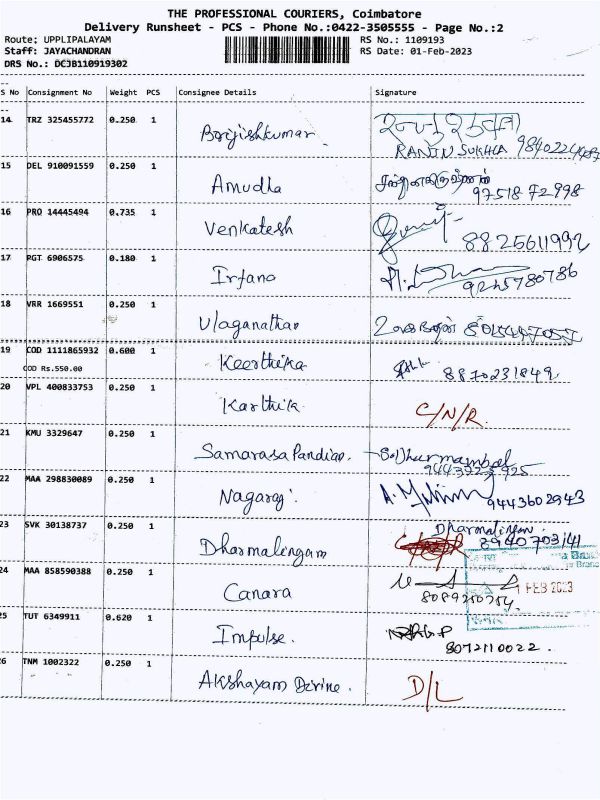 THE PROFESSIONAL COURIERS, Coimbatore
Delivery Runsheet - PCS - Phone No.:0422-3505555 - Page No.:2
Route: UPPLIPALAYAM
RS No.: 1109193
Staff: JAYACHANDRAN
RS Date: 01-Feb-2023
DRS No.: DCJB110919302
S No Consignment No Weight PCS Consignee Details Signature
14 TRZ 325455772 0.250 1 Borijishkumar
RANJN SUKHLA
15 DEL 910091559 0.250 1 Amudha
97518 72998
16 PRO 14445494 0.735 1 Venkatesh
8825611992
17 PGT 6906575 0.180 1 Irfana
9245780786
18 VRR 1669551 0.250 1 Ulaganathan
19 COD 1111865932 0.600 1 Keerthika 8870231849
COD Rs.550.00
20 VPL 400833753 0.250 1 Karthik C/N/R.
21 KMU 3329647 0.250 1 Samarasa Pandian.
22 MAA 298830089 0.250 1 Nagaraj. 9443602943
23 SVK 30138737 0.250 1 Dharmalingam Dharmalingam
8940703141
24 MAA 858590388 0.250 1 Canara
FEB 2023
25 TUT 6349911 0.620 1 Impulse.
8072110022.
26 TNM 1002322 0.250 1 Akshayam Devine. D/L